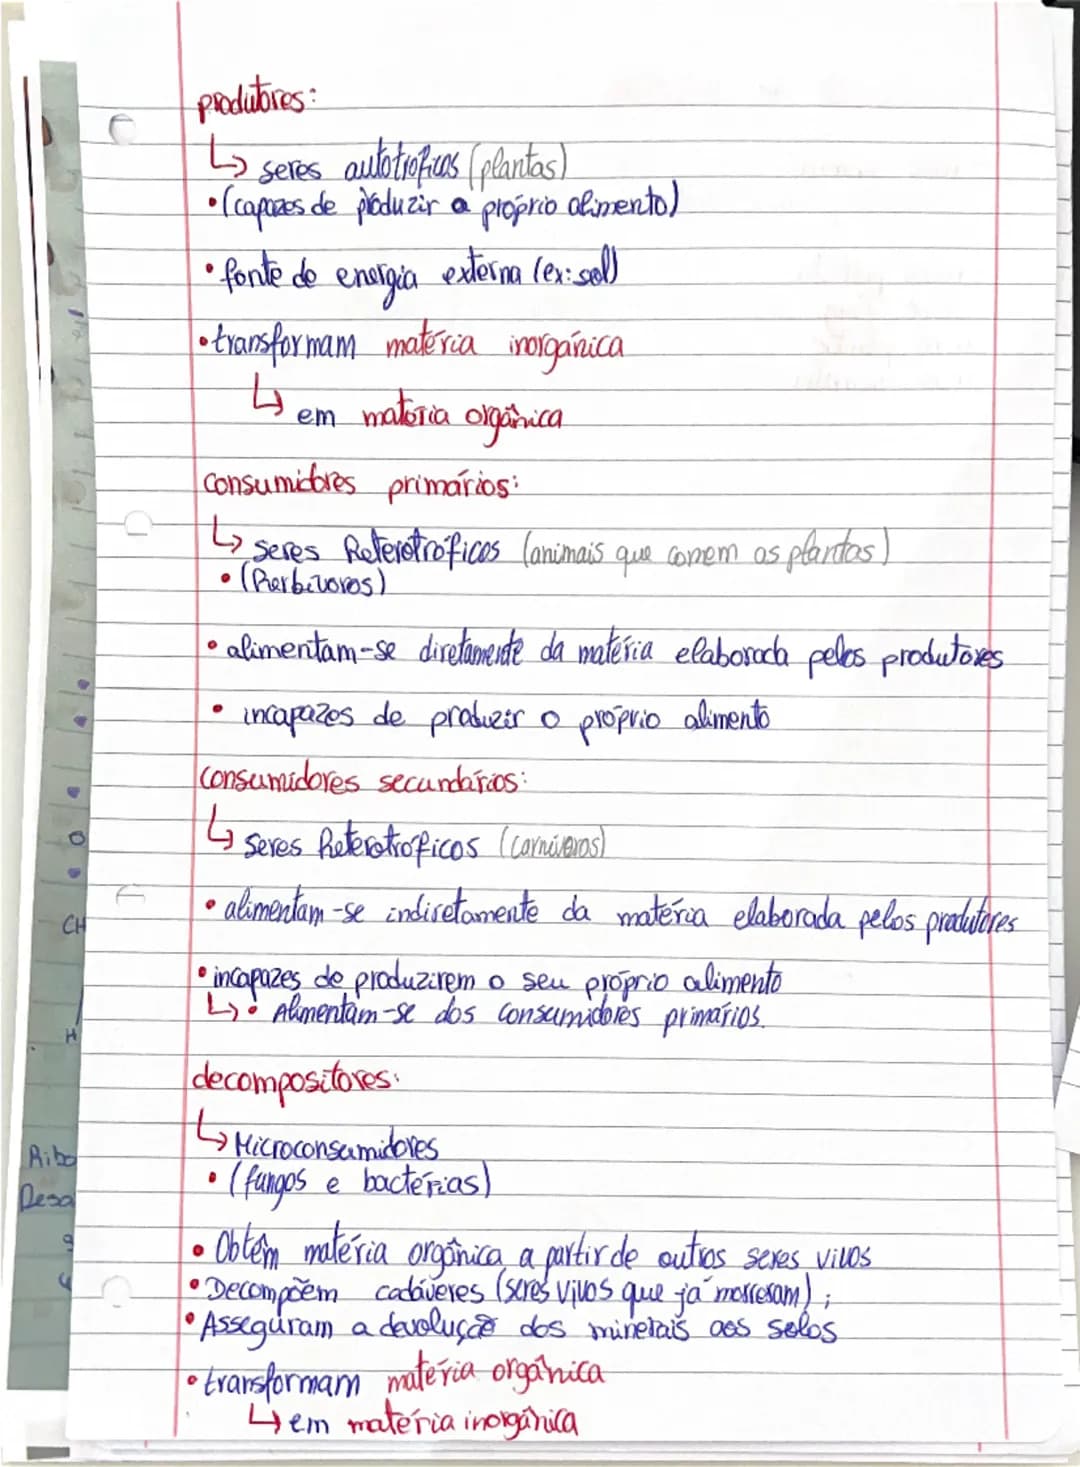 produtores:
↳ seres autotróficos (plantas)
• (capazes de produzir o próprio alimento)
• fonte de energia externa (ex: sol)
• transformam matéria inorgânica
↳ em matéria orgânica
consumidores primários:
↳ seres heterotróficos (animais que comem as plantas)
• (herbívoros)
• alimentam-se diretamente da matéria elaborada pelos produtores
• incapazes de produzir o próprio alimento
consumidores secundários:
↳ seres heterotróficos (carnívoros)
• alimentam-se indiretamente da matéria elaborada pelos produtores
• incapazes de produzirem o seu próprio alimento
↳ • Alimentam-se dos consumidores primários.
decompositores:
↳ Microconsumidores
• (fungos e bactérias)
• Obtêm matéria orgânica a partir de outros seres vivos
• Decompõem cadáveres (seres vivos que já morreram);
• Asseguram a devolução dos minerais aos solos
• transformam matéria orgânica
↳ em matéria inorgânica
CH
H
Ribo
Desa